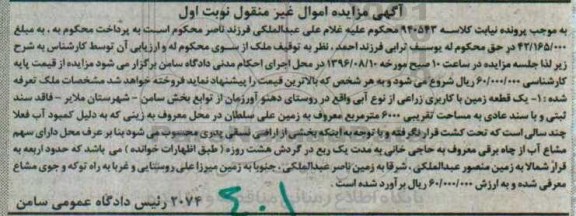 آگهی مزایده اموال غیر منقول نوبت اول
به موجب پرونده نیابت کلاسه ۹۴۰۵۴۳ محکوم علیه غلام علی عبدالملکی فرزند ناصر محکوم است به پرداخت محکوم به ، به مبلغ
۴۳/۱۶۵/۰۰۰ در حق محکوم له یوسف ترابی فرزند احمد ، نظر به توقیف ملک از سوی محکوم له و ارزیابی آن توسط کارشناس به شرح
زیر لذا جلسه مزایده در ساعت ۱۰ صبح مورخه ۱۳۹۶/۰۸/۱۰ در محل اجرای احکام مدنی دادگاه سامن برگزار می شود مزایده از قیمت پایه
کارشناسی ۶۰/۰۰۰/۰۰۰ ریال شروع می شود و به هر شخص که بالاترین قیمت را پیشنهاد نماید فروخته خواهد شد مشخصات ملک تعرفه
شده : ۱- یک قطعه زمین با کاربری زراعی از نوع آبی واقع در روستای دهنو آورزمان از توابع بخش سامن - شهرستان ملایر - فاقد سند
ثبتی و با سند عادی به مساحت تقریبی ۶۰۰۰ مترمربع معروف به زمین علی سلطان در محل معروف به زینی که به دلیل کمبود آب فعلا
چند سالی است که تحت کشت قرار نگرفته و با توجه به اینکه بخشی از اراضی نسقی محسوب می شود بنا بر عرف محل دارای سهم
مشاع آب از چاه برقی معروف به حاجی خانی به مدت یک ربع در گردش هشت روزه ( طبق اظهارات خوانده ) می باشد که حدود اربعه به
قرار شمالا به زمین منصور عبدالملکی ، شرقا به زمین ناصر عبدالملکی ، جنوبا به زمین میرزا علی روستایی و غربا به راه توکه و جوی مشاع
معرفی شده و به ارزش ۶۰/۰۰۰/۰۰۰ ریال برآورد شده است .
۲۰۷۴ رئیس دادگاه عمومی سامن